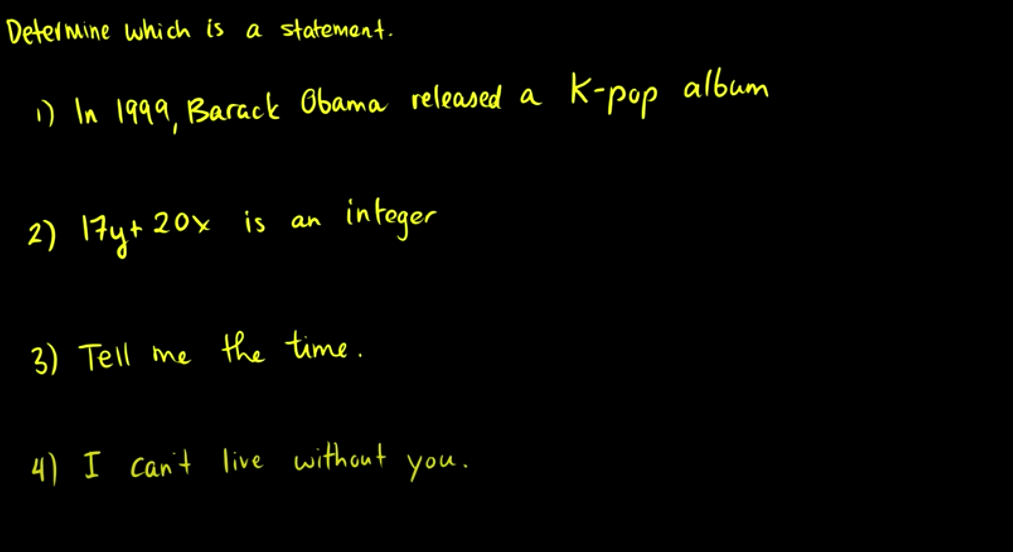 Determine which is a statement.
1) In 1999, Barack Obama released a K-pop album
2) 17y+ 20x is an integer
3) Tell me the time.
4) I can't live without you.